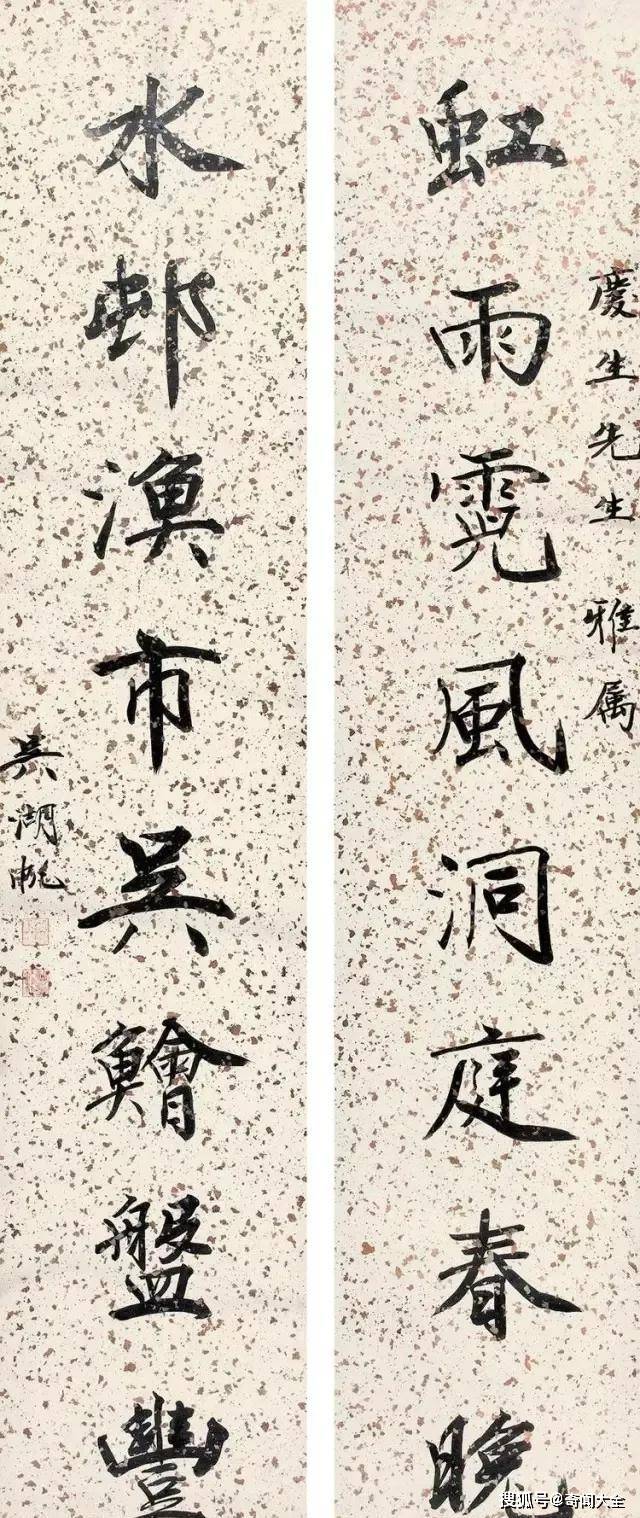 慶生先生雅属
虹雨霓風洞庭春晚
水邨漁市吳鱠盤豐
吳湖帆
搜狐号@奇闻大全